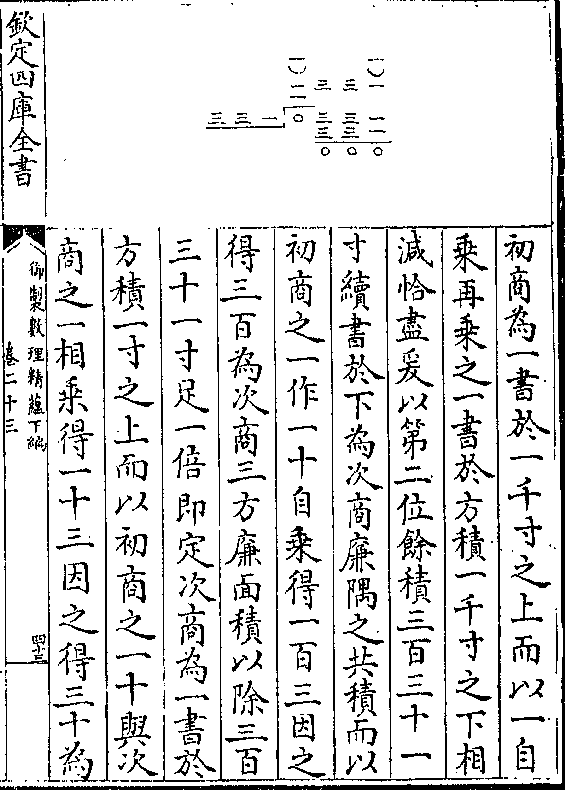 一　一
一三三一
一三三一
三三一〇三三一
〇〇〇
初商為一書於一千寸之上而以一自
乘再乘之一書於方積一千寸之下相
減恰盡爰以第二位餘積三百三十一
寸續書於下為次商廉隅之共積而以
初商之一作一十自乘得一百三因之
得三百為次商三方廉面積以除三百
三十一寸足一倍即定次商為一書於
方積一寸之上而以初商之一十與次
商之一相乘得一十三因之得三十為
欽定四庫全書
御製數理精蘊下編
卷二十三
四十三